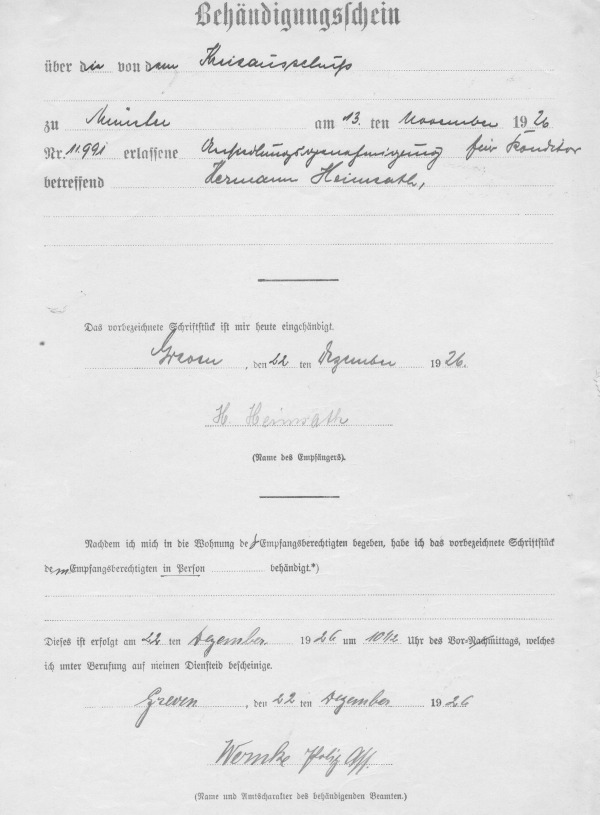 Behändigungsschein
über die von dem Kreisausschuß
zu Münster am 13. ten November 1926
Nr. 11991 erlassene Ansiedlungsgenehmigung für Konditor
betreffend Hermann Heimrath,
Das vorbezeichnete Schriftstück ist mir heute eingehändigt.
Greven, den 22 ten Dezember 1926.
H. Heimrath
(Name des Empfängers).
Nachdem ich mich in die Wohnung des Empfangsberechtigten begeben, habe ich das vorbezeichnete Schriftstück
dem Empfangsberechtigten in Person behändigt.*)
Dieses ist erfolgt am 22 ten Dezember 1926 um 10 1/2 Uhr des Vor-Nachmittags, welches
ich unter Berufung auf meinen Diensteid bescheinige.
Greven, den 22 ten Dezember 1926
Polig Ass.
(Name und Amtscharakter des behändigenden Beamten.)